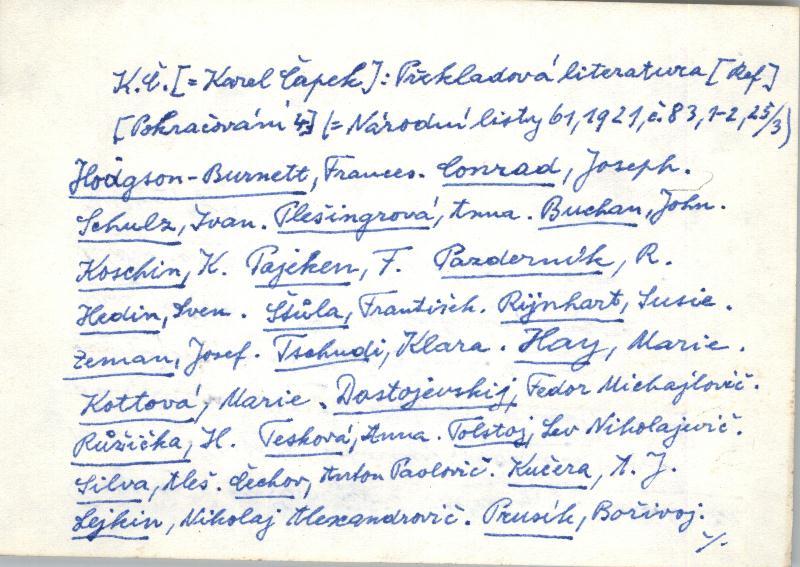 K.Č. [= Karel Čapek]: Překladová literatura [Ref]
[Pokračování 4] (= Národní listy 61, 1921, č. 83, 1-2, 25/3)
Hodgson-Burnett, Frances. Conrad, Joseph.
Schulz, Ivan. Plešingrová, Anna. Buchan, John.
Koschin, K. Pajeken, F. Pazderník, R.
Hedin, Sven. Štůla, František. Rijnhart, Susie.
Zeman, Josef. Tschudi, Klara. Hay, Marie.
Kottová, Marie. Dostojevskij, Fedor Michajlovič.
Růžička, H. Tesková, Anna. Tolstoj, Lev Nikolajevič.
Silva, Aleš. Čechov, Anton Paolovič. Kučera, A. J.
Lejkin, Nikolaj Alexandrovič. Prusík, Bořivoj.
./.